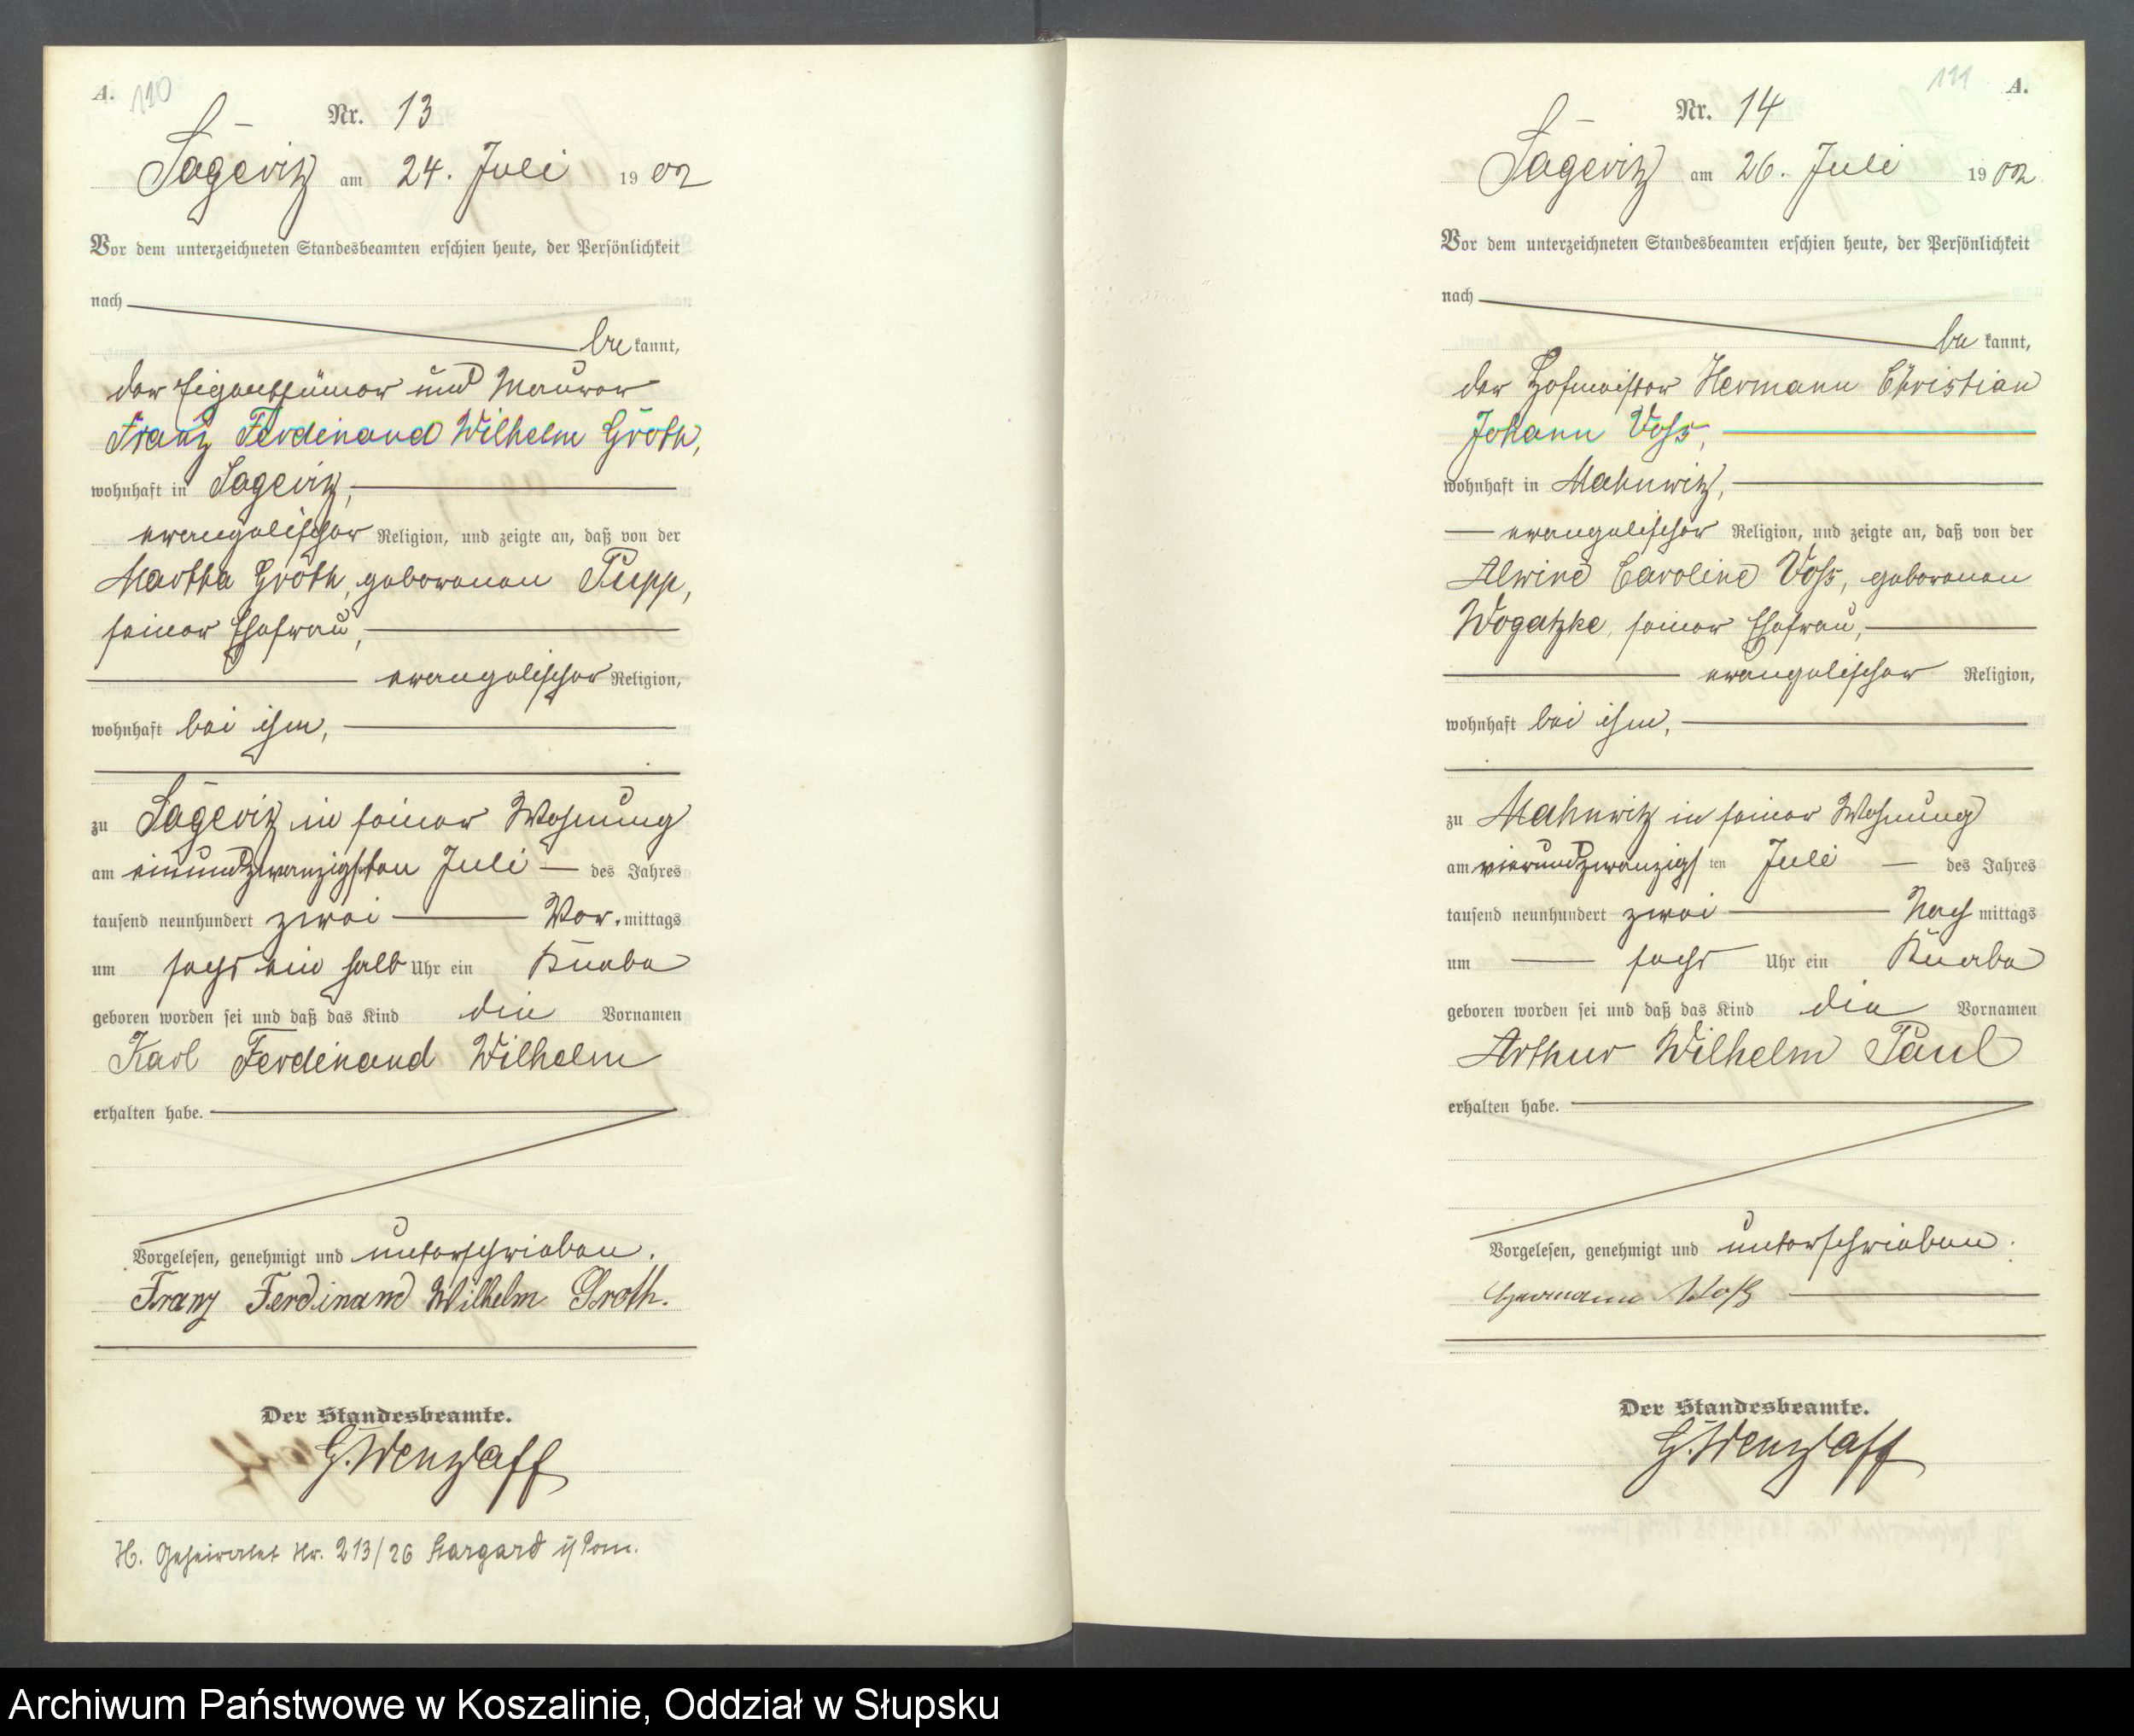 A. 110
Nr. 13
Sageritz am 24. Juli 1902
Vor dem unterzeichneten Standesbeamten erschien heute, der Persönlichkeit
nach
be kannt,
der Eigenthümer und Maurer
Franz Ferdinand Wilhelm Groth,
wohnhaft in Sageritz,
evangelischer Religion, und zeigte an, daß von der
Martha Groth, geborenen Pupp,
seiner Ehefrau,
evangelischer Religion,
wohnhaft bei ihm,
zu Sageritz in seiner Wohnung
am einundzwanzigsten Juli des Jahres
tausend neunhundert zwei Vor. mittags
um sechs ein halb Uhr ein Knabe
geboren worden sei und daß das Kind die Vornamen
Karl Ferdinand Wilhelm
erhalten habe.
Vorgelesen, genehmigt und unterschrieben.
Franz Ferdinand Wilhelm Groth.
Der Standesbeamte.
G. Wenzlaff
H. Geheiratet Nr. 213/26 Stargard i/Pom.
111 A.
Nr. 14
Sageritz am 26. Juli 1902
Vor dem unterzeichneten Standesbeamten erschien heute, der Persönlichkeit
nach
be kannt,
der Hofmeister Hermann Christian
Johann Voss,
wohnhaft in Mahnwitz,
evangelischer Religion, und zeigte an, daß von der
Alwine Caroline Voss, geborenen
Wogatzke, seiner Ehefrau,
evangelischer Religion,
wohnhaft bei ihm,
zu Mahnwitz in seiner Wohnung
am vierundzwanzigsten Juli des Jahres
tausend neunhundert zwei Nach mittags
um sechs Uhr ein Knabe
geboren worden sei und daß das Kind die Vornamen
Arthur Wilhelm Paul
erhalten habe.
Vorgelesen, genehmigt und unterschrieben.
Hermann Voß
Der Standesbeamte.
G. Wenzlaff
Archiwum Państwowe w Koszalinie, Oddział w Słupsku